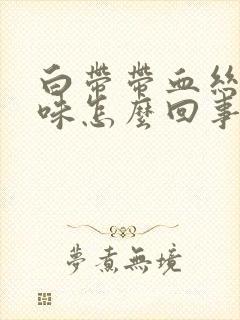 白帶帶血絲
味怎麼回事
夢煮無境